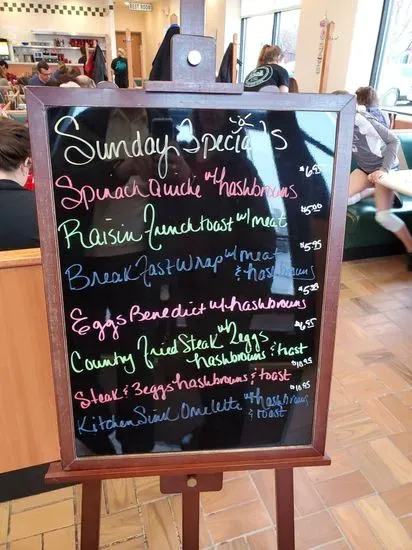 REST ROOM
Sunday Specials
Spinach Quiche w/ hashbrowns $6.95
Raisin french toast w/ meat $5.00
BreakFast Wrap w/ meat $5.95
& hashbrowns
Eggs Benedict w/ hashbrowns
Country fried Steak w/ 2 eggs $6.95
hashbrowns & toast
Steak & 3 eggs hashbrowns & toast $10.95
Kitchen Sink Omelette w/ hashbrowns $10.95
& toast